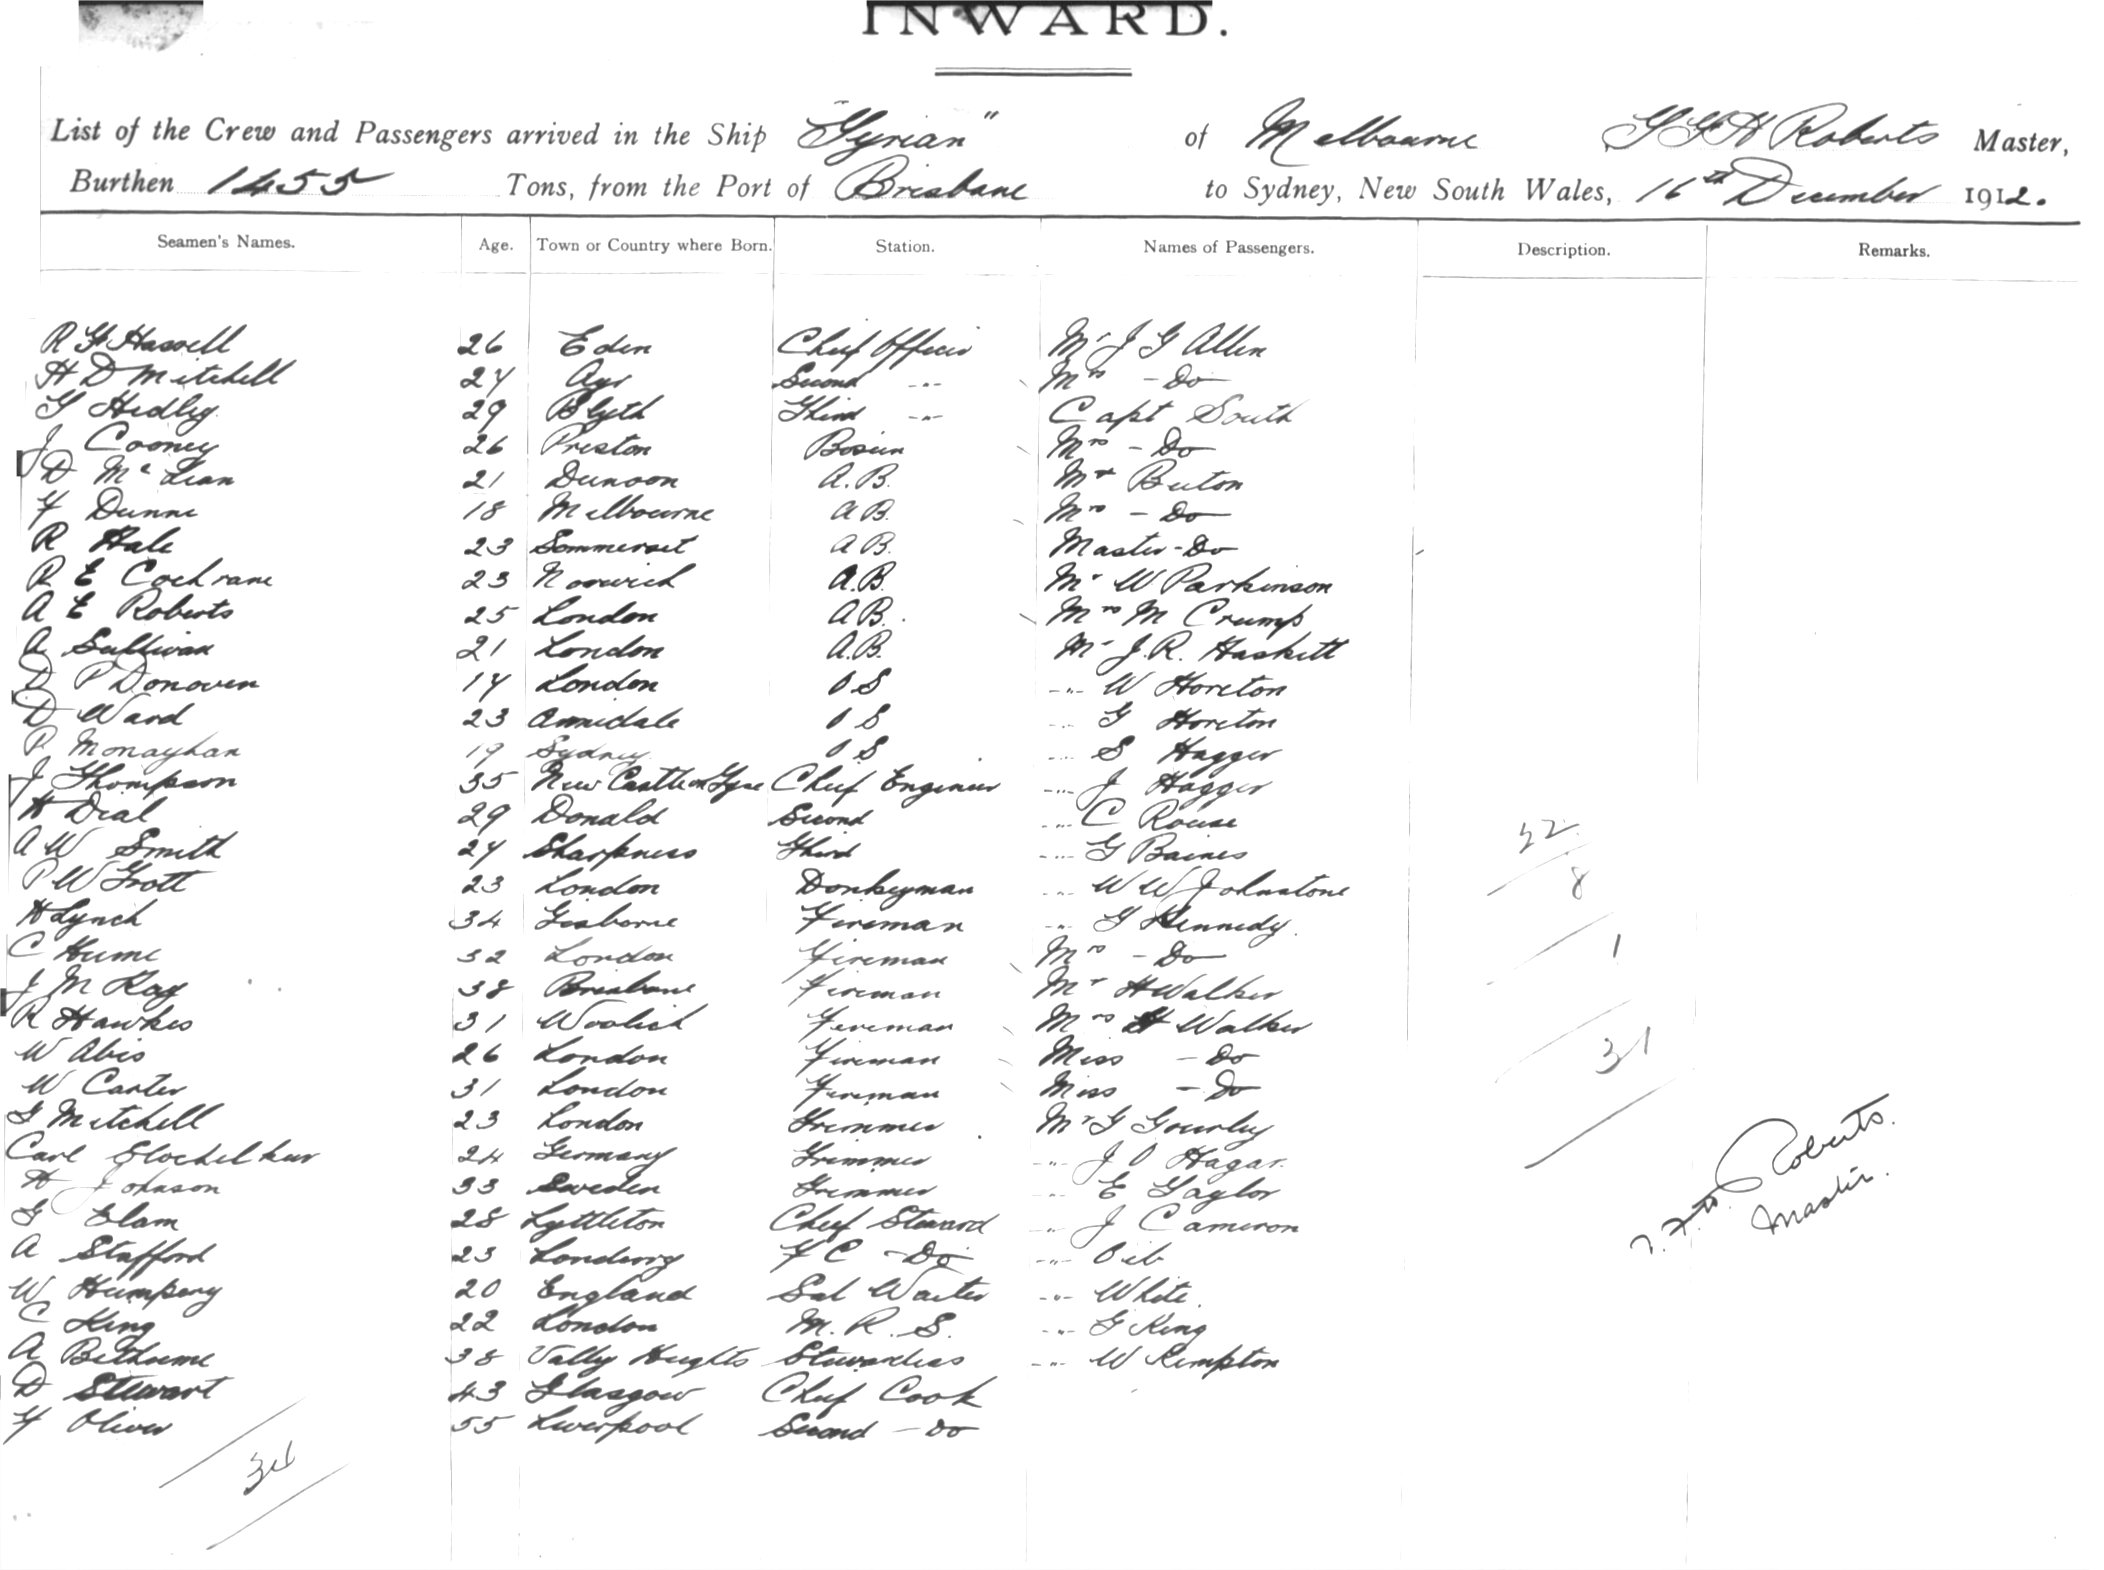 INWARD.
List of the Crew and Passengers arrived in the Ship "Tyrian" of Melbourne T F H Roberts Master,
Burthen 1455 Tons, from the Port of Brisbane to Sydney, New South Wales, 16th December 1912.
Seamen's Names. Age. Town or Country where Born. Station. Names of Passengers. Description. Remarks.
R F Hassell 26 Eden Chief Officer Mr J G Allen
H D Mitchell 24 Ayr Second -"- Mrs - Do
G Hedley 29 Blyth Third -"- Capt South
J Cooney 26 Preston Bosun Mrs - Do
D McLean 21 Dunoon A.B. Mr Buton
F Dunne 18 Melbourne A B. Mrs - Do
R Hale 23 Sommerset A B. Master - Do
R E Cochrane 23 Norwich A.B. Mr W Parkinson
A E Roberts 25 London A B. Mrs M Crump
A Sullivan 21 London A.B. Mr J.R. Haskett
D P Donoven 17 London O S -"- W Horeton
D Ward 23 Armidale O S -"- G Horeton
P Monayhan 19 Sydney O S -"- S Hagger
J Thompson 35 New Castle on Tyne Chief Engineer -"- J Hagger
H Deal 29 Donald Second -"- C Rouse
A W Smith 24 Sharpness Third -"- G Baines 22
P W Trott 23 London Donkeyman -"- W W Johnstone 8
H Lynch 34 Gisborne Fireman -"- G Kennedy.
C Hume 32 London Fireman Mrs - Do 1
J M Kay 38 Brisbane Fireman Mr H Walker
R Hawkes 31 Woolich Fireman Mrs H Walker
W Abis 26 London Fireman Miss - Do 31
W Carter 31 London Fireman Miss - Do
G Mitchell 23 London Trimmer Mr G Gourley
Carl 24 Germany Trimmer -"- J O Hagar.
H Johnson 33 Sweden Trimmer -"- E Taylor
G Elam 28 Lyttleton Chief Steward -"- J Cameron
A Stafford 23 F C - Do -"-
W Humpery 20 England Sal Waiter -"- White.
C King 22 London M. R. S. -"- G King
A Bethume 38 Vally Heights Stewardess -"- W Kempton
D Stewart 43 Glasgow Chief Cook
F Oliver 55 Liverpool Second - Do
34
T. F. H. Roberts.
Master.